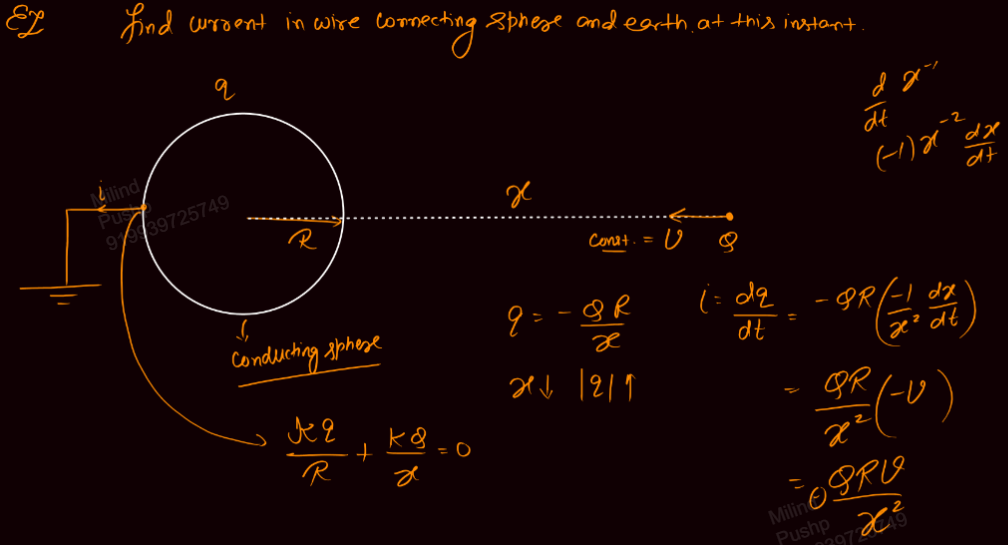 Ex find current in wire connecting sphere and earth at this instant.
q
d/dt x⁻¹
(-1) x⁻² dx/dt
i
Milind
Pushp
919939725749
x
R
const. = v
Q
conducting sphere
q = - QR/x
i = dq/dt = - QR (-1/x² dx/dt)
x↓ |q|↑
= QR/x² (-v)
kq/R + kQ/x = 0
= ⊖ QRv/x²
Milind
Pushp